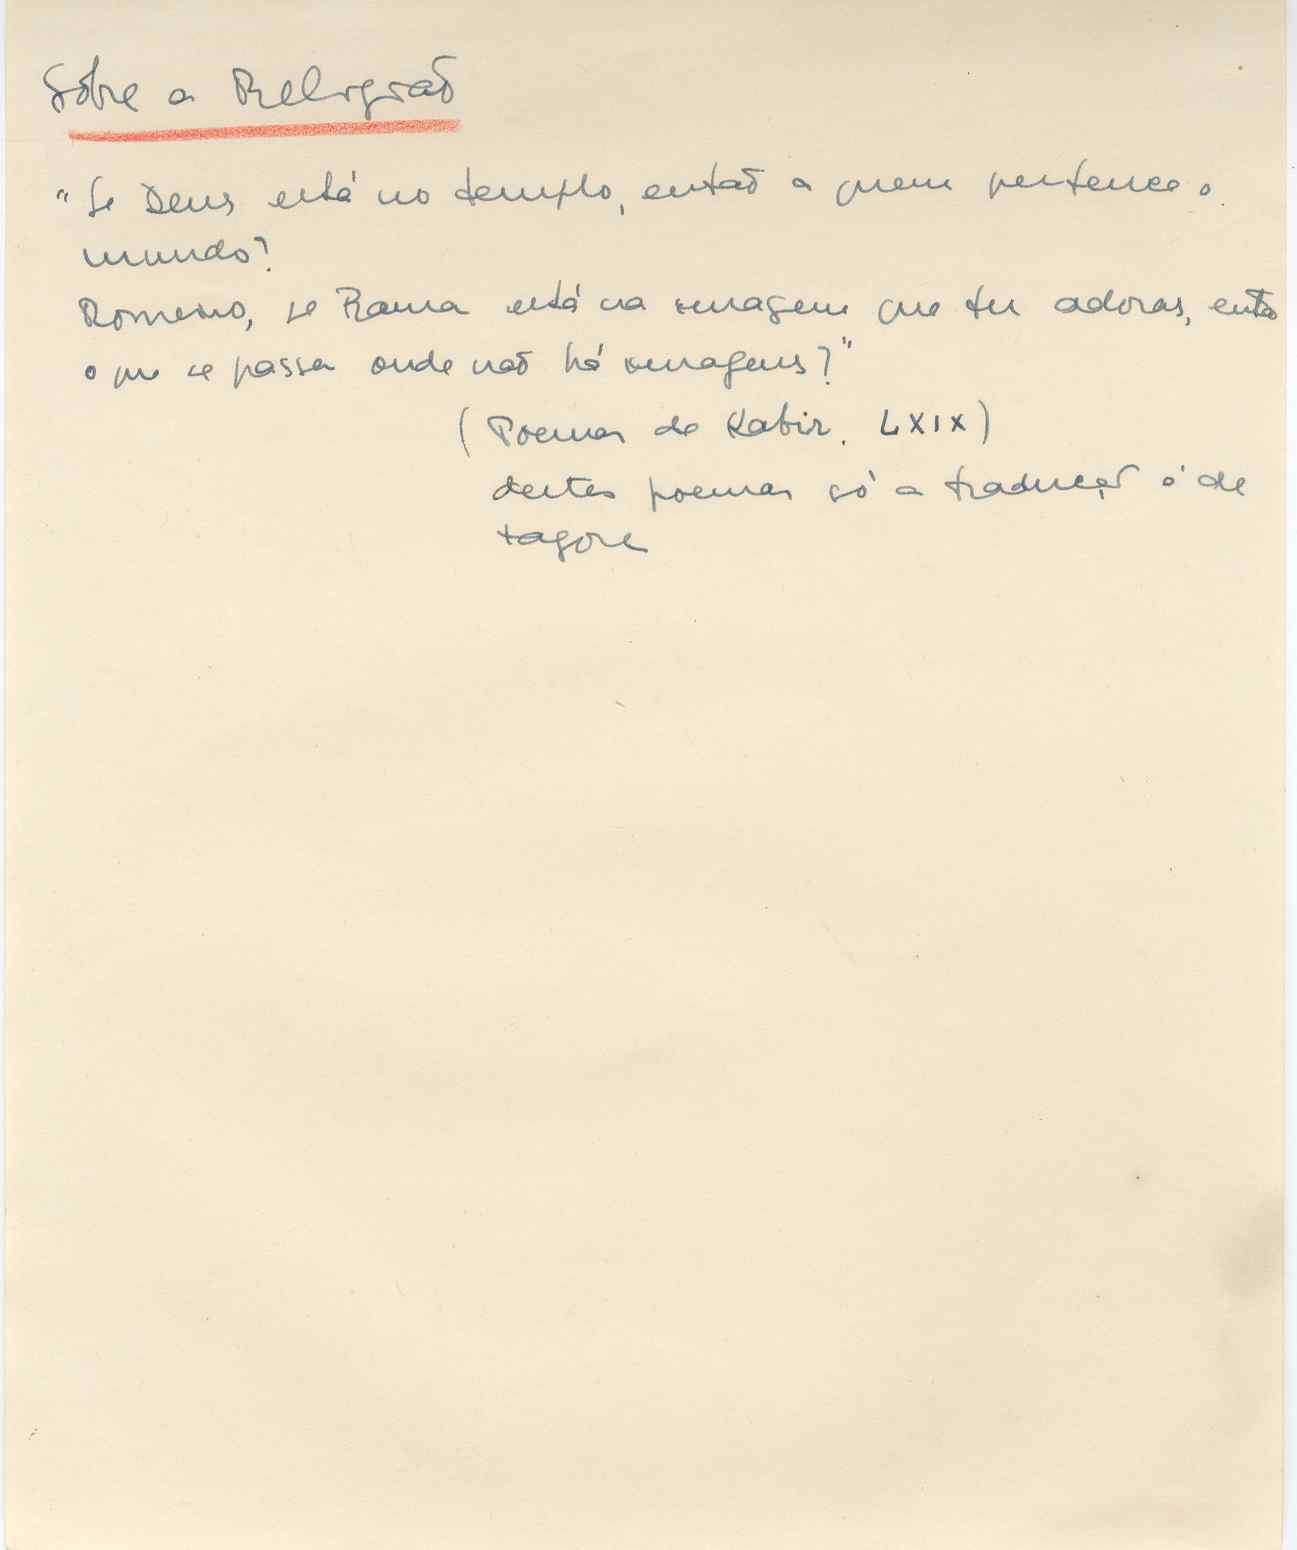 Sôbre a Religião
"Se Deus está no templo, então a quem pertence o
mundo?
Romeiro, se Rama está na imagem que tu adoras, então
o que se passa onde não há imagens?"
(Poemas de Kabir. LXIX)
destes poemas só a tradução é de
tagore